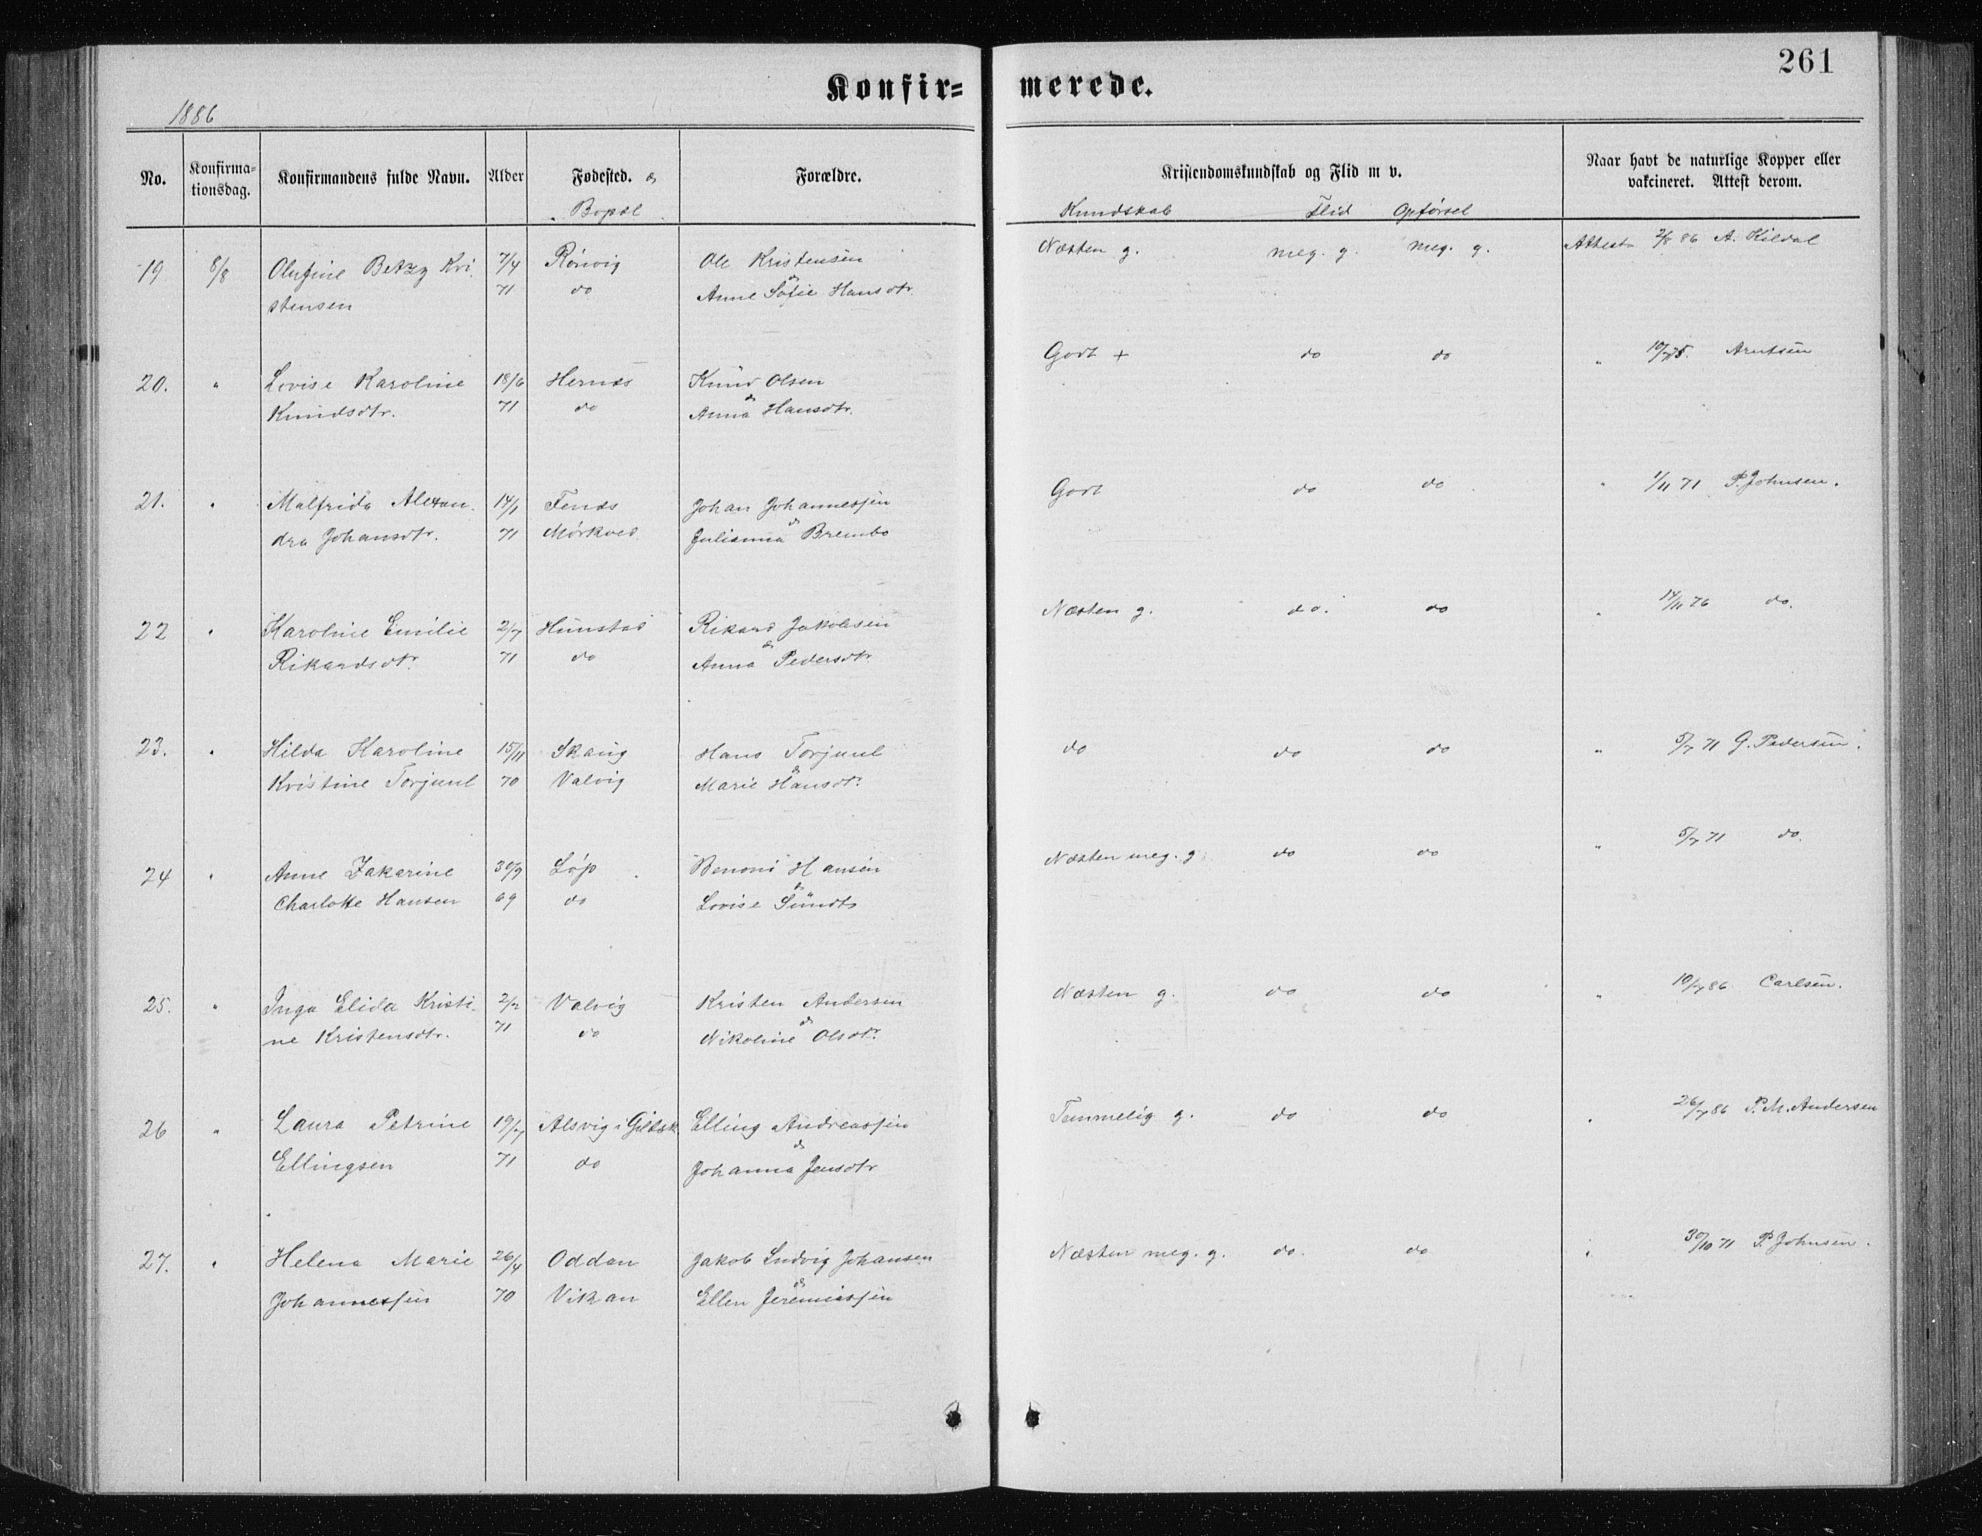 261
Konfir= merede.
1886
No. Konfirma-tionsdag. Konfirmandens fulde Navn. Alder Fødested. & Bopæl Forældre. Kristendomskundskab og Flid m v. Naar havt de naturlige Kopper eller vakcineret. Attest derom.
Kundskab Flid Opførsel
19 8/8 Olufine Betzy Kri- 7/4 Rønvig Ole Kristensen Næsten g. meg. g. meg. g. Attest 2/8 86 A. Hildal
stensen 71 do & Anne Sofie Hansdtr.
20. " Lovise Karoline 18/6 Hernæs Knud Olsen Godt + do do " 10/7 75. Arntsen
Knudsdtr. 71 do & Anna Hansdtr.
21. " Malfrida Alexan- 14/1 Fenæs Johan Johannessen Godt do do " 1/11 71 P. Johnsen.
dra Johansdtr. 71 Mørkved & Julianna Brembo
22 " Karoline Emilie 2/7 Hunstad Rikard Jakobsen Næsten g. do. do " 14/11 76 do.
Rikardsdtr. 71 do & Anna Pedersdtr.
23. " Hilda Karoline 15/11 Skaug Hans Torjuul do do do " 5/7 71 G. Pedersen.
Kristine Torjuul 70 Valvig & Marie Hansdtr.
24 " Anne Zakarine 30/9 Løp Benoni Hansen Næsten meg. g. do do " 5/7 71 do.
Charlotte Hansen 69 do & Lovise Sundts
25. " Inga Elida Kristi- 2/2 Valvig Kristen Andersen Næsten g. do do " 10/7 86 Carlsen.
ne Kristensdtr. 71 do & Nikoline Olsdtr.
26 " Laura Petrine 19/7 Alsvig i Gildsk. Elling Andreassen Temmelig g. do do " 26/7 86 P. M. Andersen
Ellingsen 71 do & Johanna Jensdtr
27. " Helena Marie 26/4 Oddan Jakob Ludvig Johansen Næsten meg. g. do. do " 30/10 71 P. Johnsen.
Johannessen 70 Vikan & Ellen Jeremiassen